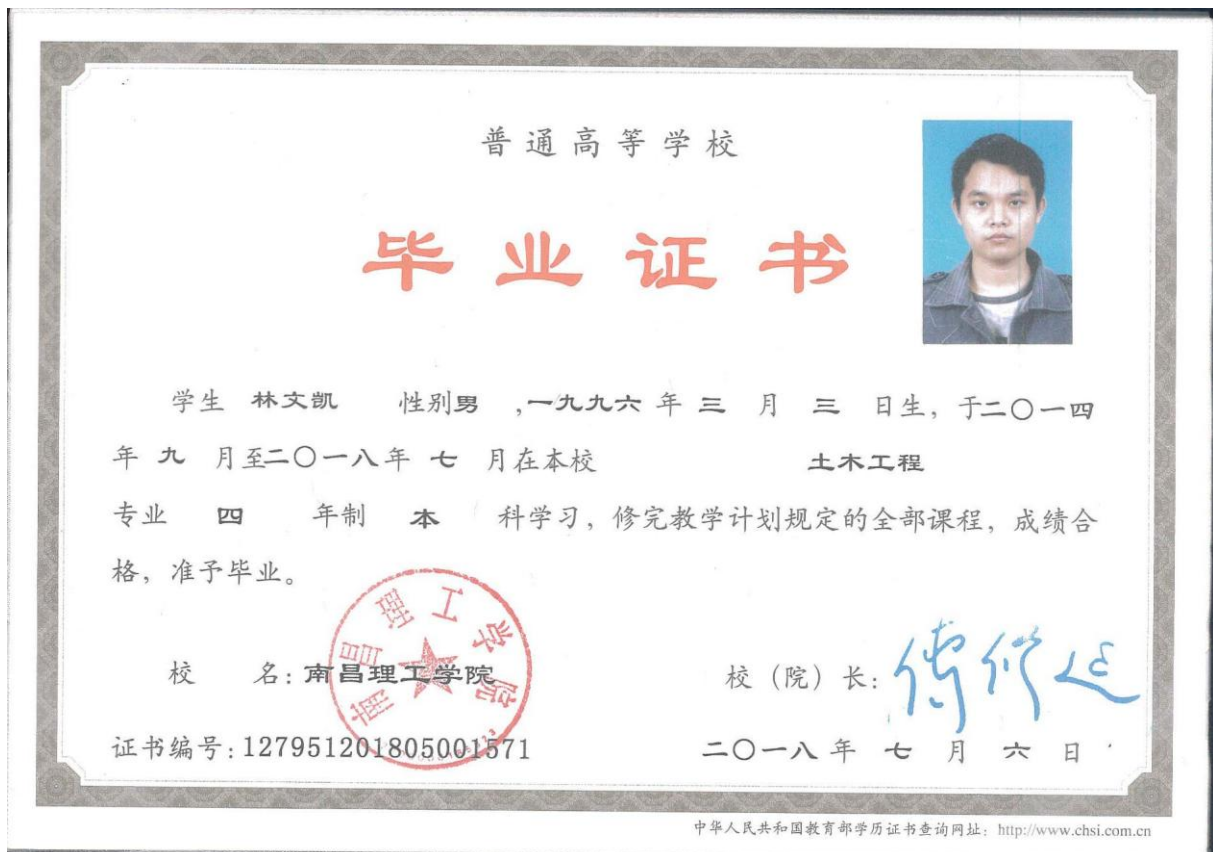 普通高等学校
毕业证书
学生 林文凯 性别男 ,一九九六 年 三 月 三 日生，于二〇一四
年 九 月至二〇一八年 七 月在本校 土木工程
专业 四 年制 本 科学习，修完教学计划规定的全部课程，成绩合
格，准予毕业。
南昌理工学院
校 名：南昌理工学院
校（院）长：
证书编号：127951201805001571
二〇一八 年 七 月 六 日
中华人民共和国教育部学历证书查询网址：http://www.chsi.com.cn